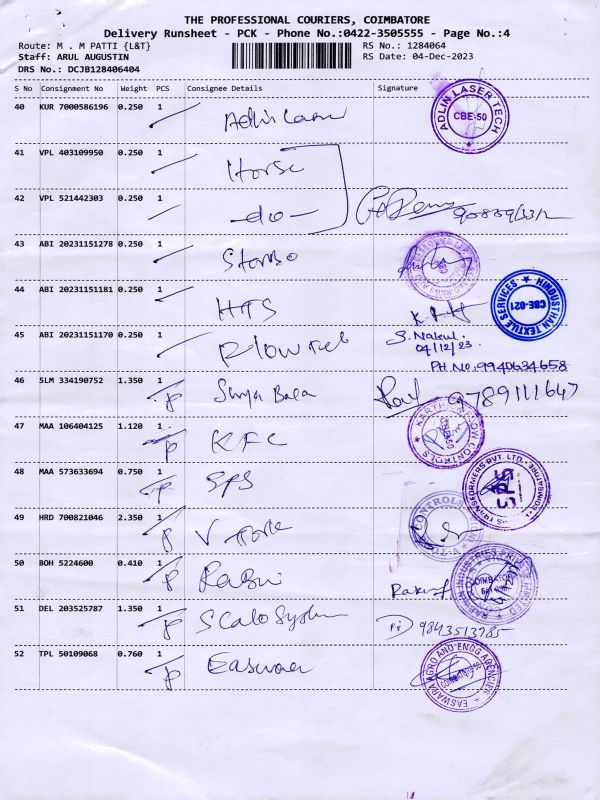 THE PROFESSIONAL COURIERS, COIMBATORE
Delivery Runsheet - PCK - Phone No.:0422-3505555 - Page No.:4
Route: M . M PATTI {L&T} RS No.: 1284064
Staff: ARUL AUGUSTIN RS Date: 04-Dec-2023
DRS No.: DCJB128406404
S No Consignment No Weight PCS Consignee Details Signature
40 KUR 7000586196 0.250 1 Adlin Laser ADLIN LASER TECH CBE-50
41 VPL 403109950 0.250 1 Horse
42 VPL 521442303 0.250 1 -do-
43 ABI 20231151278 0.250 1
44 ABI 20231151181 0.250 1 HTS HINDUSTHAN TEXTILE SERVICES CBE-021
45 ABI 20231151170 0.250 1 S. Nakul.
04/12/23.
PH NO: 9940634658
46 SLM 334190752 1.350 1 Surya Bala 9789111647
47 MAA 106404125 1.120 1 KFC KARTHIK FLOW CONTROLS
48 MAA 573633694 0.750 1 SPS TRANSFORMERS PVT. LTD.
49 HRD 700821046 2.350 1 V Tork CONTROLS
50 BOH 5224600 0.410 1 INDUSTRIES PRIVATE LIMITED COIMBATORE
51 DEL 203525787 1.350 1 Scalo System 9843513785
52 TPL 50109068 0.760 1 Easwara EASWARA AGRO AND ENGG AGENCIES